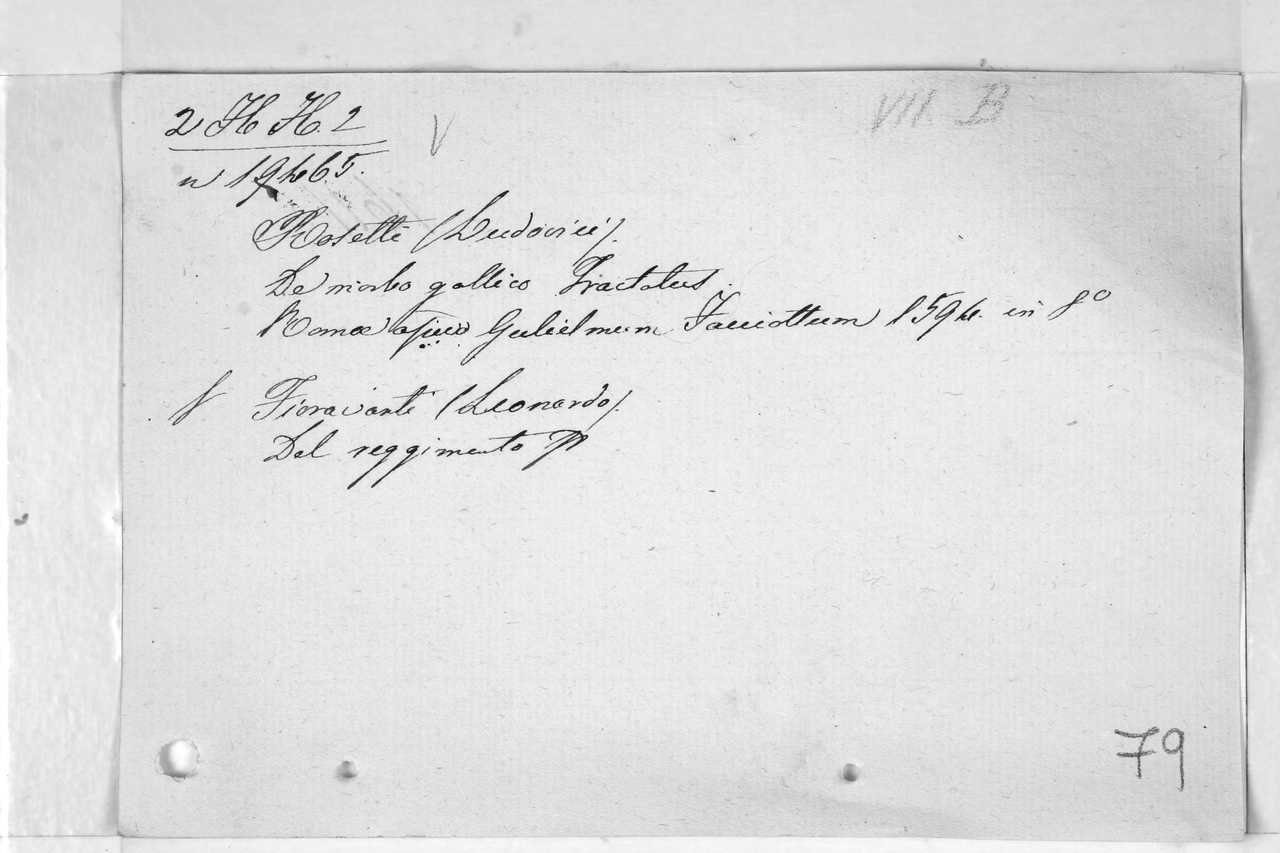 2 H H. 2
V
VII B
n 19465.
Rosetti (Ludovici).
De morbo gallico Tractatus.
Romae apud Gulielmum Facciottum 1594. in 8º
f. Fioravanti (Leonardo).
Del reggimento
79